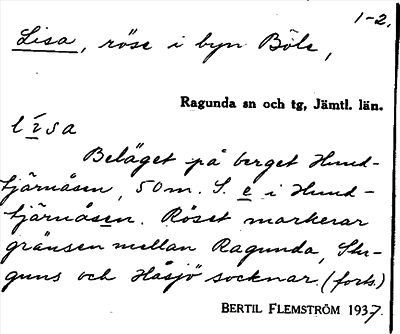 1-2.
Lisa, röse i byn Böle,
Ragunda sn och tg, Jämtl. län.
lisa
Beläget på berget Hund-
tjärnåsen, 50 m. S. e i Hund-
tjärnåsen. Röset markerar
gränsen mellan Ragunda, Stu-
guns och Håsjö socknar. (forts.)
BERTIL FLEMSTRÖM 1937.